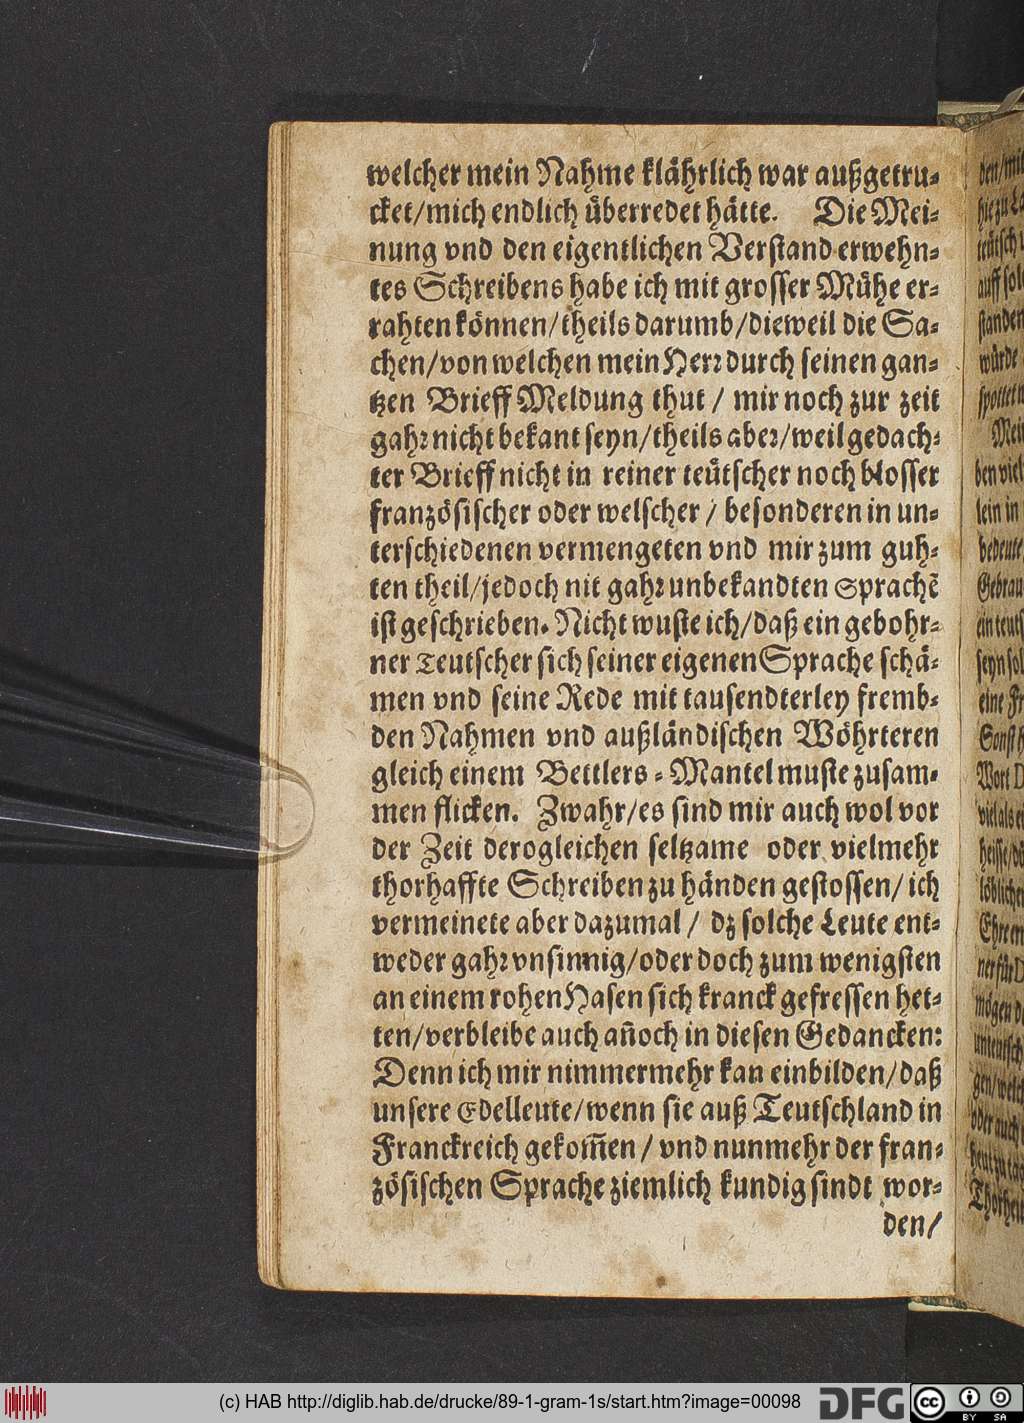 welcher mein Nahme klährlich war außgetru⸗
cket/mich endlich überredet hätte. Die Mei⸗
nung vnd den eigentlichen Verstand erwehn⸗
tes Schreibens habe ich mit grosser Mühe er⸗
rahten können/theils darumb/dieweil die Sa⸗
chen/von welchen mein Herr durch seinen gan⸗
tzen Brieff Meldung thut / mir noch zur zeit
gahr nicht bekant seyn/theils aber/weil gedach⸗
ter Brieff nicht in reiner teütscher noch blosser
französischer oder welscher / besonderen in un⸗
terschiedenen vermengeten vnd mir zum guh⸗
ten theil/jedoch nit gahr unbekandten Sprachẽ
ist geschrieben. Nicht wuste ich/daß ein gebohr⸗
ner Teutscher sich seiner eigenen Sprache schä⸗
men vnd seine Rede mit tausendterley fremb⸗
den Nahmen vnd außländischen Wöhrteren
gleich einem Bettlers⸗Mantel muste zusam⸗
men flicken. Zwahr/es sind mir auch wol vor
der Zeit derogleichen seltzame oder vielmehr
thorhaffte Schreiben zu händen gestossen/ ich
vermeinete aber dazumal / dz solche Leute ent⸗
weder gahr vnsinnig/oder doch zum wenigsten
an einem rohen Hasen sich kranck gefressen het⸗
ten/verbleibe auch añoch in diesen Gedancken:
Denn ich mir nimmermehr kan einbilden/daß
unsere Edelleute/wenn sie auß Teutschland in
Franckreich gekom̃en / vnd nunmehr der fran⸗
zösischen Sprache ziemlich kundig sindt wor⸗
den/
den/mit
hie zu
teütsch
auff
standen
würde
Mei
ben viel
lein in
bedeute
Gebrau
ein
seyn
eine
Sonst
Wort
viel als
heisse/
löbliche
Ehre
ner für
mögen
gen/
oder auch
Thorheit
(c) HAB http://diglib.hab.de/drucke/89-1-gram-1s/start.htm?image=00098
DFG
cc
BY SA